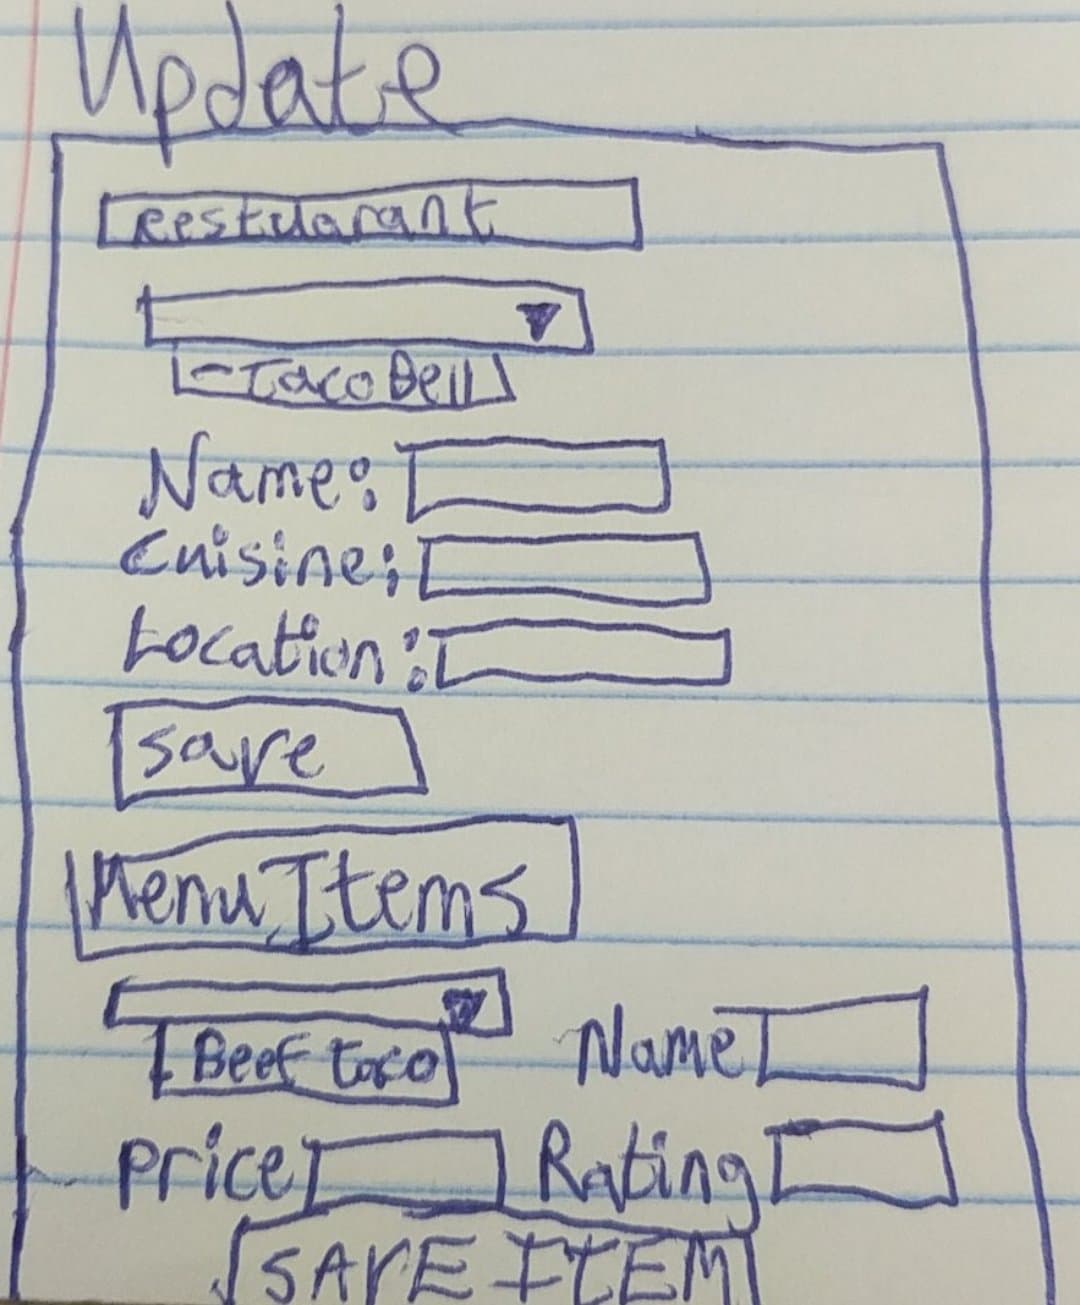 Update
Restuarant
-Taco Bell
Name:
Cuisine:
Location:
Save
Menu Items
Beef taco Name
Price Rating
SAVE ITEM